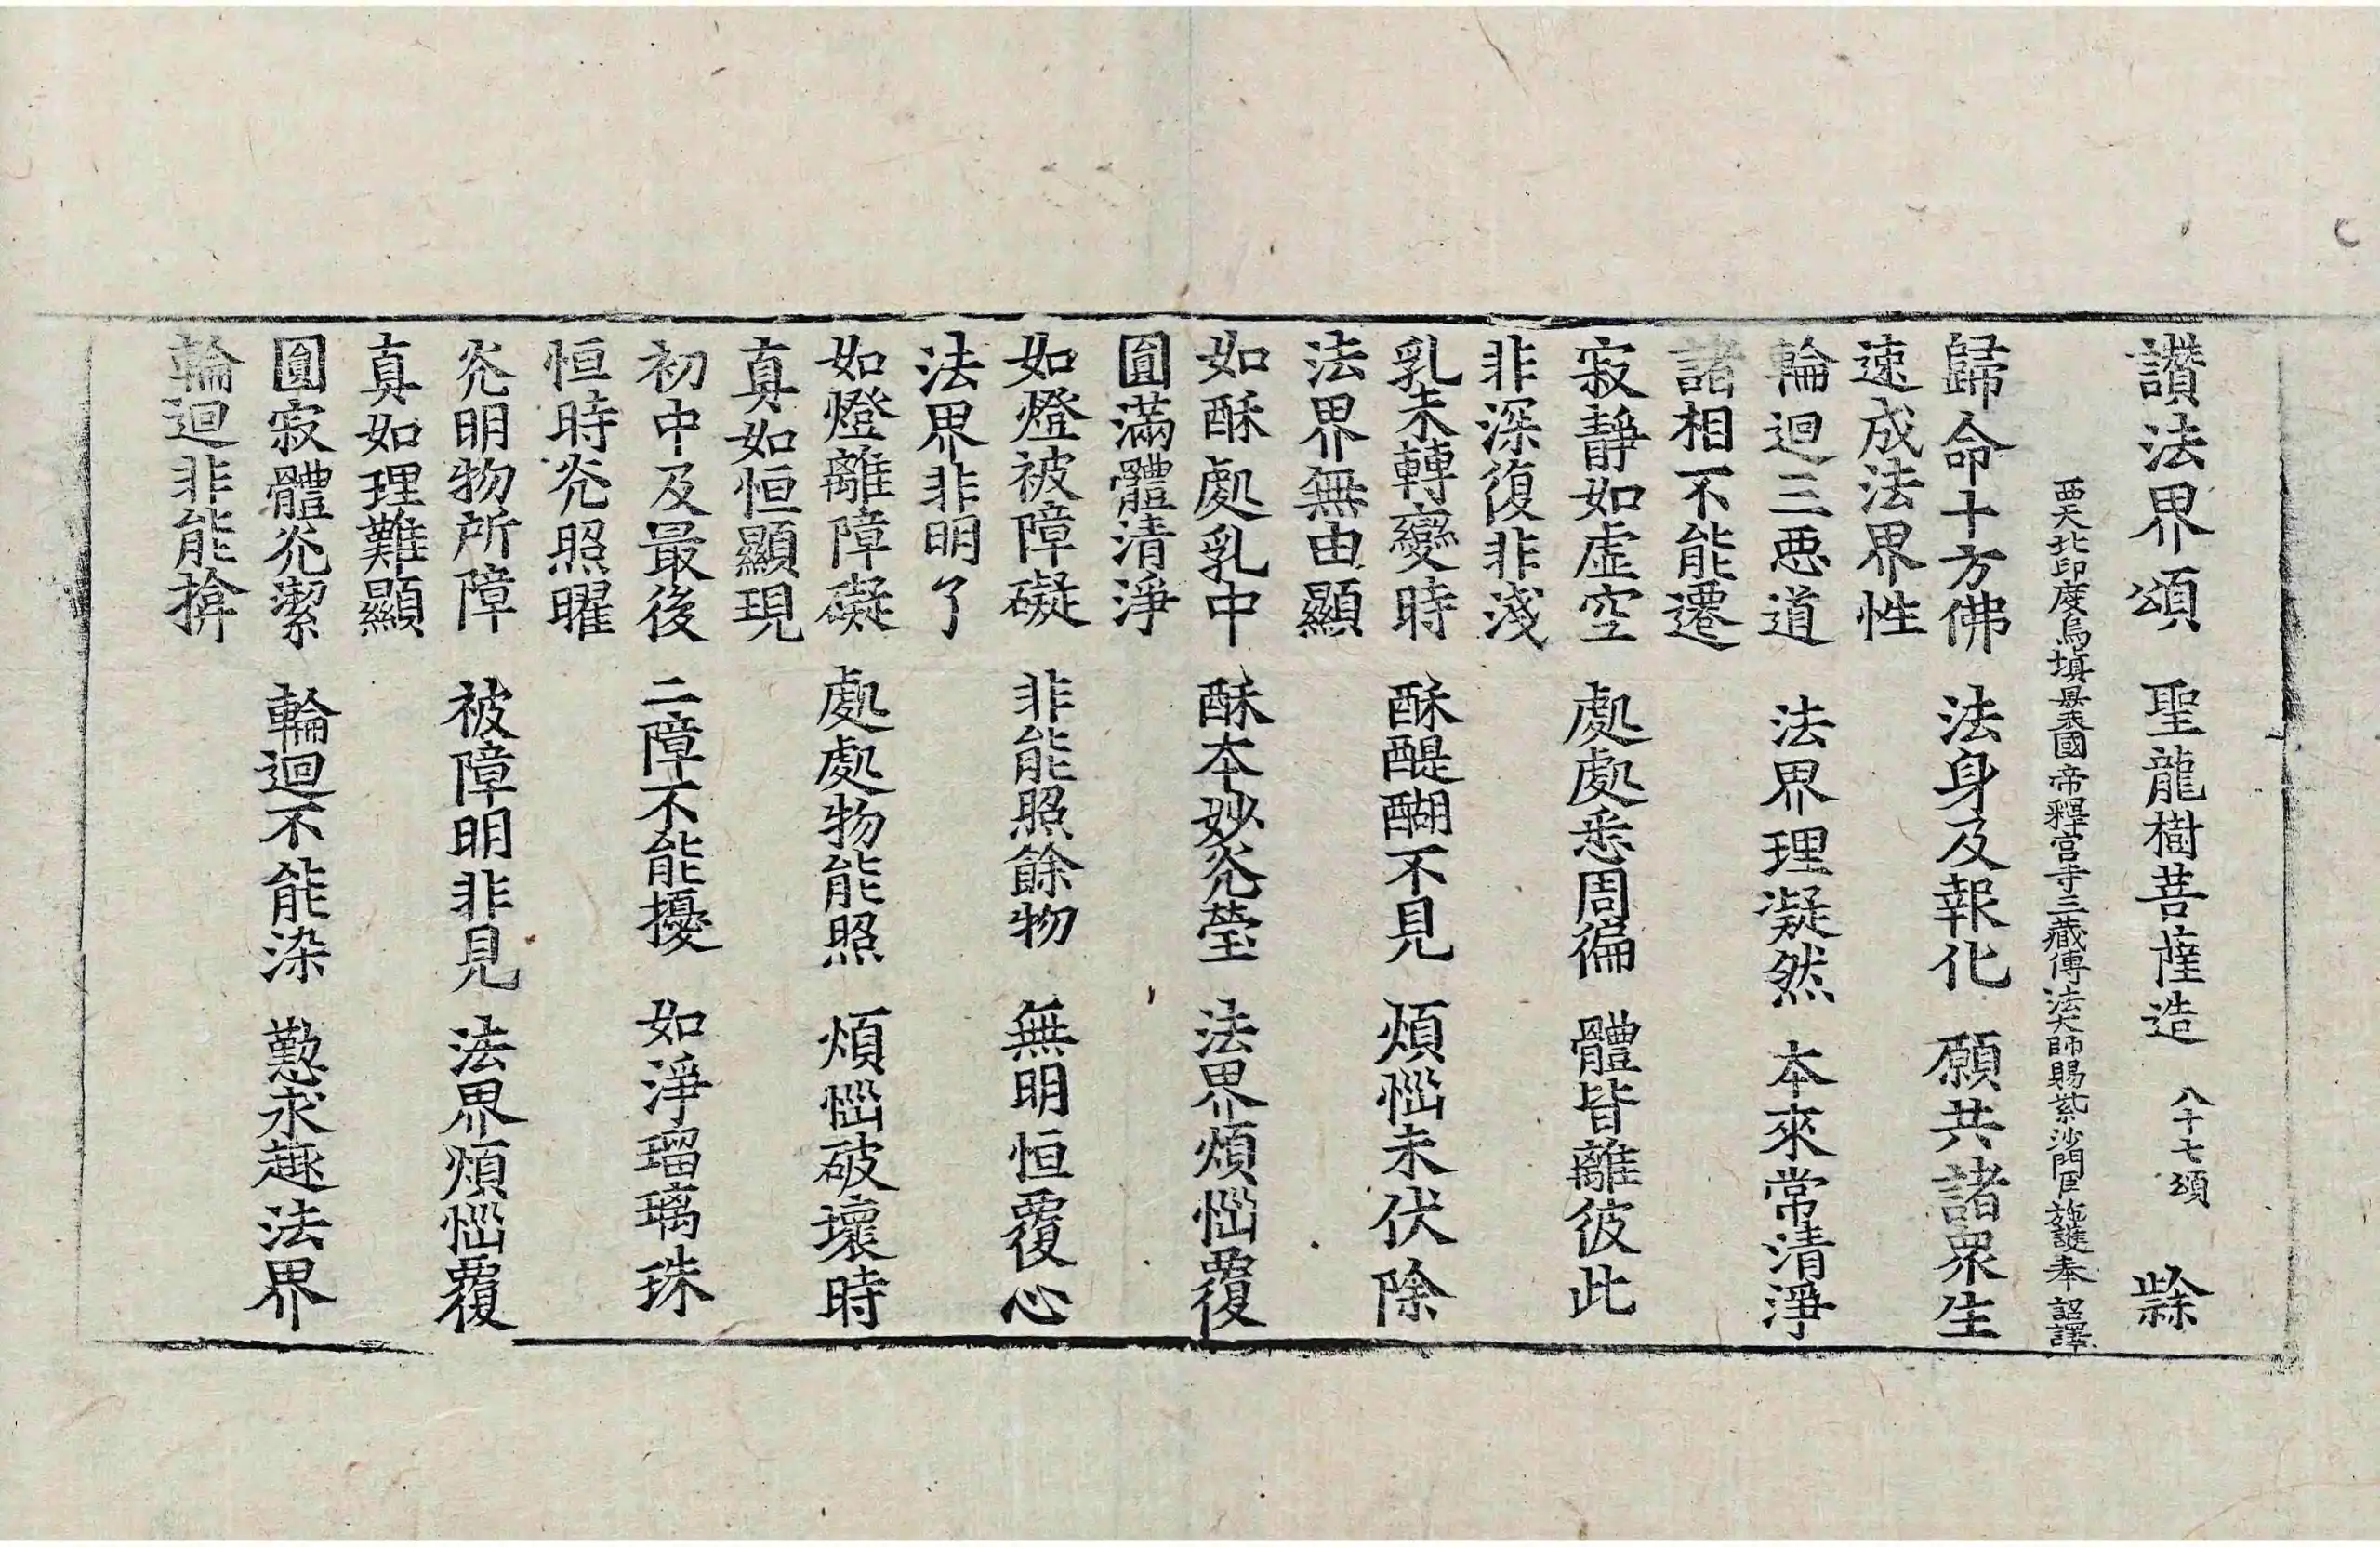 讃法界頌 聖龍樹菩薩造 八十七頌
西天北印度烏塡曩國帝釋宮寺三藏傳法大師賜紫沙門臣施護奉 詔譯
歸命十方佛 法身及報化 願共諸衆生
速成法界性
輪迴三惡道 法界理凝然 本來常清淨
諸相不能遷
寂靜如虛空 處處悉周徧 體皆離彼此
非深復非淺
乳未轉變時 酥醍醐不見 煩惱未伏除
法界無由顯
如酥處乳中 酥本妙光瑩 法界煩惱覆
圓滿體清淨
如燈被障礙 非能照餘物 無明恒覆心
法界非明了
如燈離障礙 處處物能照 煩惱破壞時
真如恒顯現
初中及最後 二障不能擾 如淨瑠璃珠
恒時光照曜
光明物所障 被障明非見 法界煩惱覆
真如理難顯
圓寂體光潔 輪迴不能染 懃求趣法界
輪迴非能揜